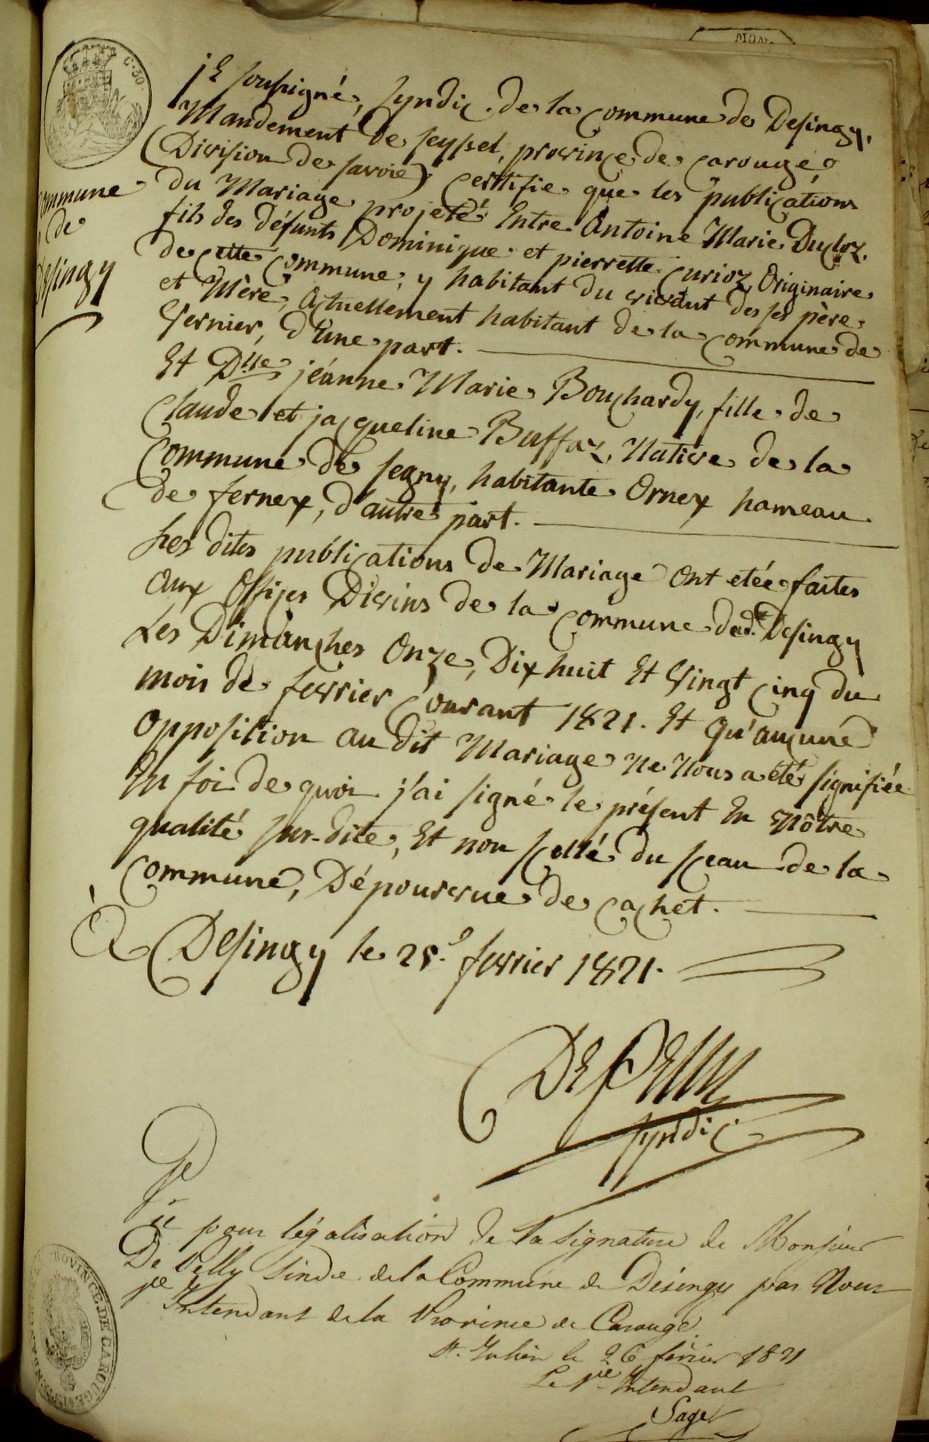 C. 30
Commune
de
Desingy
Je soussigné, syndic de la commune de Desingy,
Mandement de seyssel, province de carouge
(Division de savoie) certifie que les publications
du Mariage projetté Entre Antoine Marie Ducloz,
fils des défunts Dominique et pierrette Curioz, Originaire
de cette Commune, y habitant du vivant des ses père
et Mère, Actuellement habitant de la commune de
Vernier, d'Une part.
Et Dlle jéanne Marie Bouchardy, fille de
Claude et jacqueline Buffaz, Native de la
Commune de segny, habitante Ornex hameau
de fernex, d'autre part.
Les dites publications de Mariage Ont etée faites
aux Offices Divins de la commune dud. Desingy
Les Dimanches Onze, Dix huit Et Vingt cinq du
mois de fevrier Courant 1821. Et qu'aucune
Opposition au dit Mariage Ne Nous a été signifiée
En foi de quoi j'ai signé le présent En Nôtre
qualité sur-dite, Et non scellé du sceau de la
Commune, Dépourvue de cachet.
À Desingy le 25e fevrier 1821.
De Pelly
syndic
pour légalisation de la signature de Monsieur
De Pelly Sindic de la Commune de Desingy par Nous
Intendant de la Province de Carouge
St. Julien le 26 février 1821
Intendant
Sage
PROVINCE DE CAROUGE